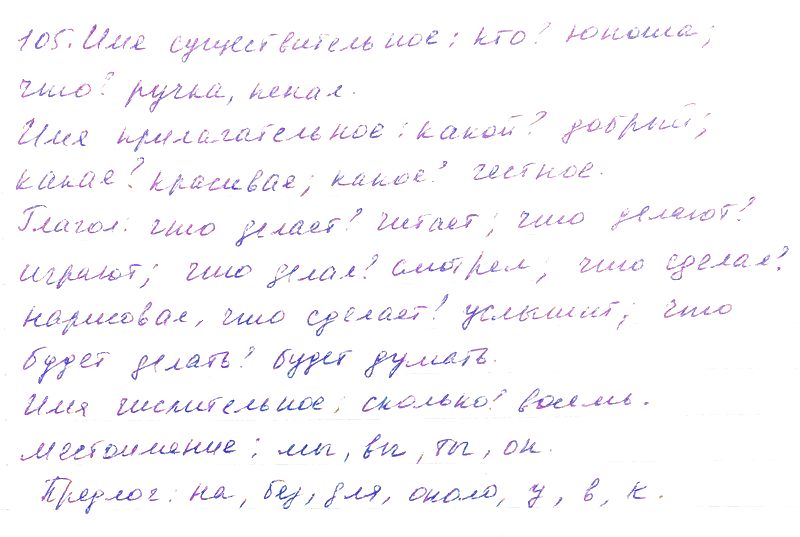 105. Имя существительное: кто? юноша;
что? ручка, пенал.
Имя прилагательное: какой? добрый;
какая? красивая; какое? честное.
Глагол: что делает? читает; что делают?
играют; что делал? смотрел; что сделал?
нарисовал, что сделает? услышит; что
будет делать? будет думать.
Имя числительное: сколько? восемь.
Местоимение: мы, вы, ты, он.
Предлог: на, без, для, около, у, в, к.